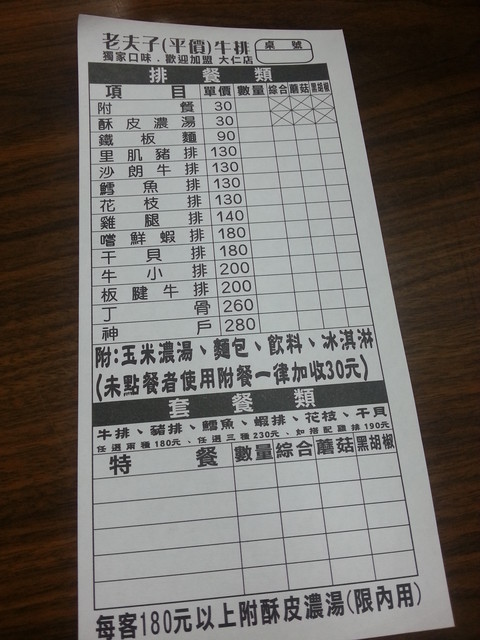 老夫子(平價)牛排 桌號
獨家口味．歡迎加盟 大仁店
排餐類
項目 單價 數量 綜合 蘑菇 黑胡椒
附餐 30
酥皮濃湯 30
鐵板麵 90
里肌豬排 130
沙朗牛排 130
鱈魚排 130
花枝排 130
雞腿排 140
嚐鮮蝦排 180
干貝排 180
牛小排 200
板腱牛排 200
丁骨 260
神戶 280
附:玉米濃湯、麵包、飲料、冰淇淋
(未點餐者使用附餐一律加收30元)
套餐類
牛排、豬排、鱈魚、蝦排、花枝、干貝
任選兩種180元、任選三種230元、如搭配雞排190元
特餐 數量 綜合 蘑菇 黑胡椒
每客180元以上附酥皮濃湯(限內用)